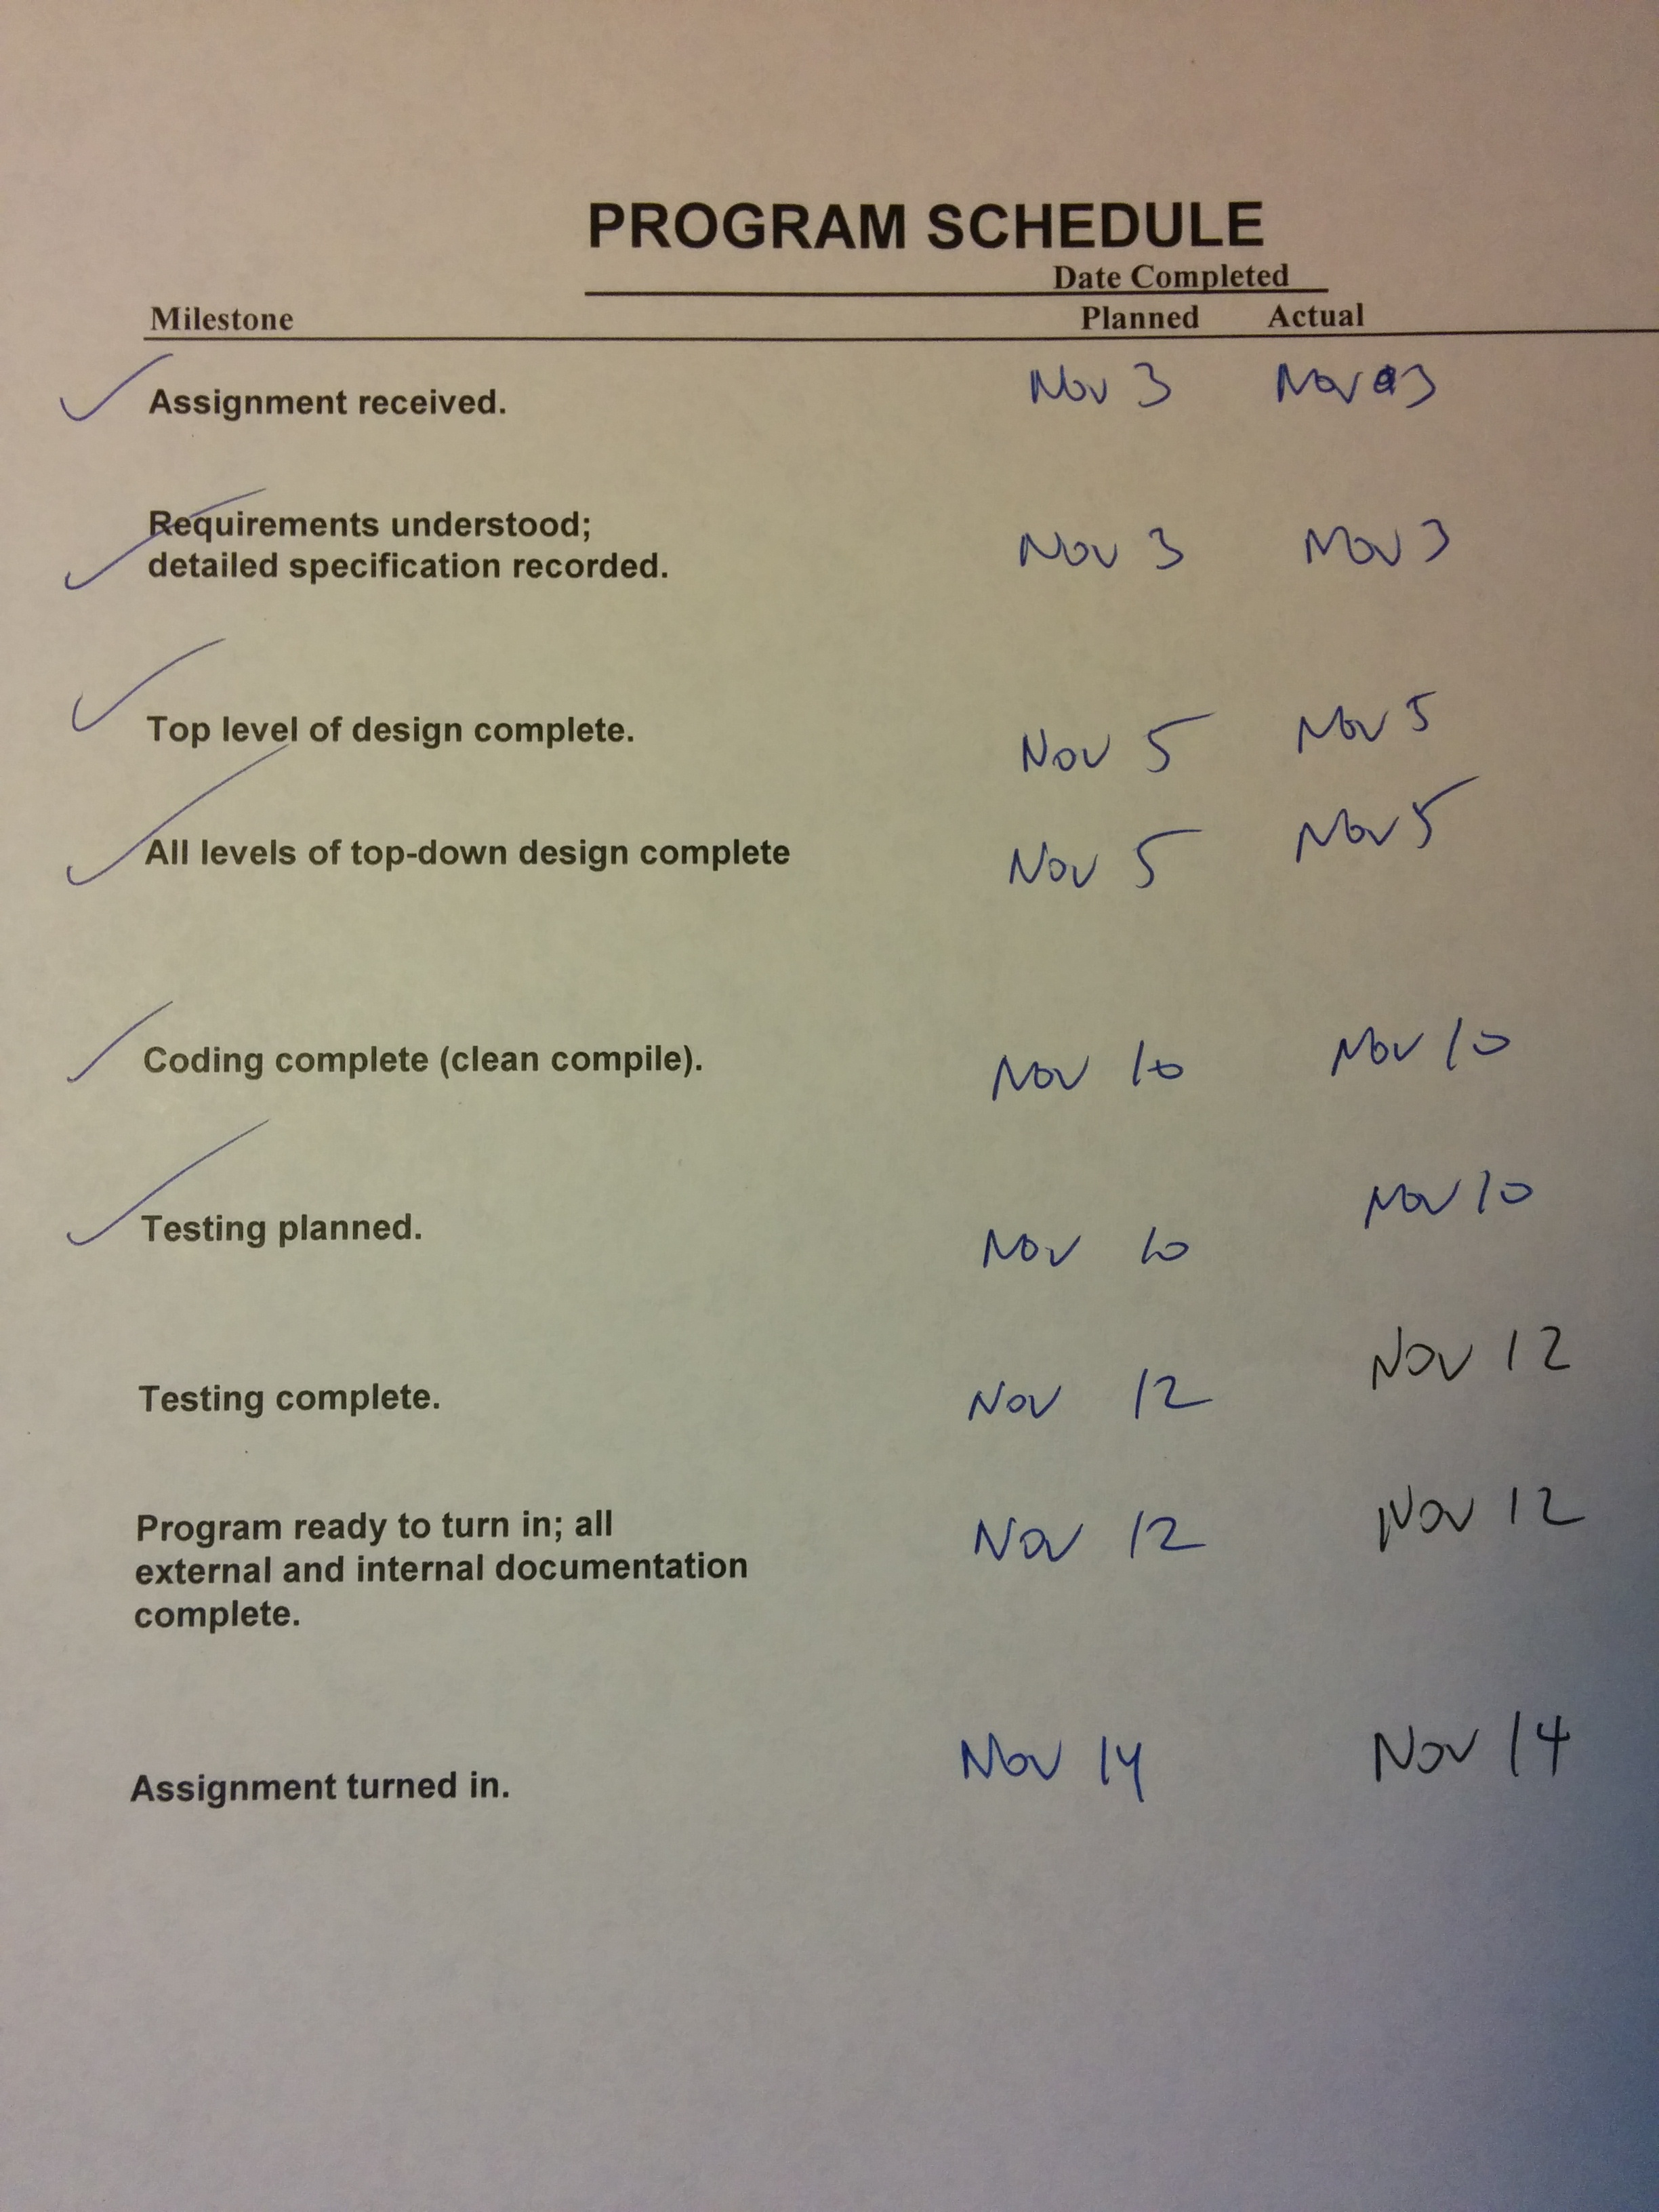 PROGRAM SCHEDULE
Date Completed
Milestone Planned Actual
Assignment received. Nov 3 Nov 3
Requirements understood;
detailed specification recorded. Nov 3 Nov 3
Top level of design complete. Nov 5 Nov 5
All levels of top-down design complete Nov 5 Nov 5
Coding complete (clean compile). Nov 10 Nov 10
Testing planned. Nov 10 Nov 10
Testing complete. Nov 12 Nov 12
Program ready to turn in; all Nov 12 Nov 12
external and internal documentation
complete.
Assignment turned in. Nov 14 Nov 14